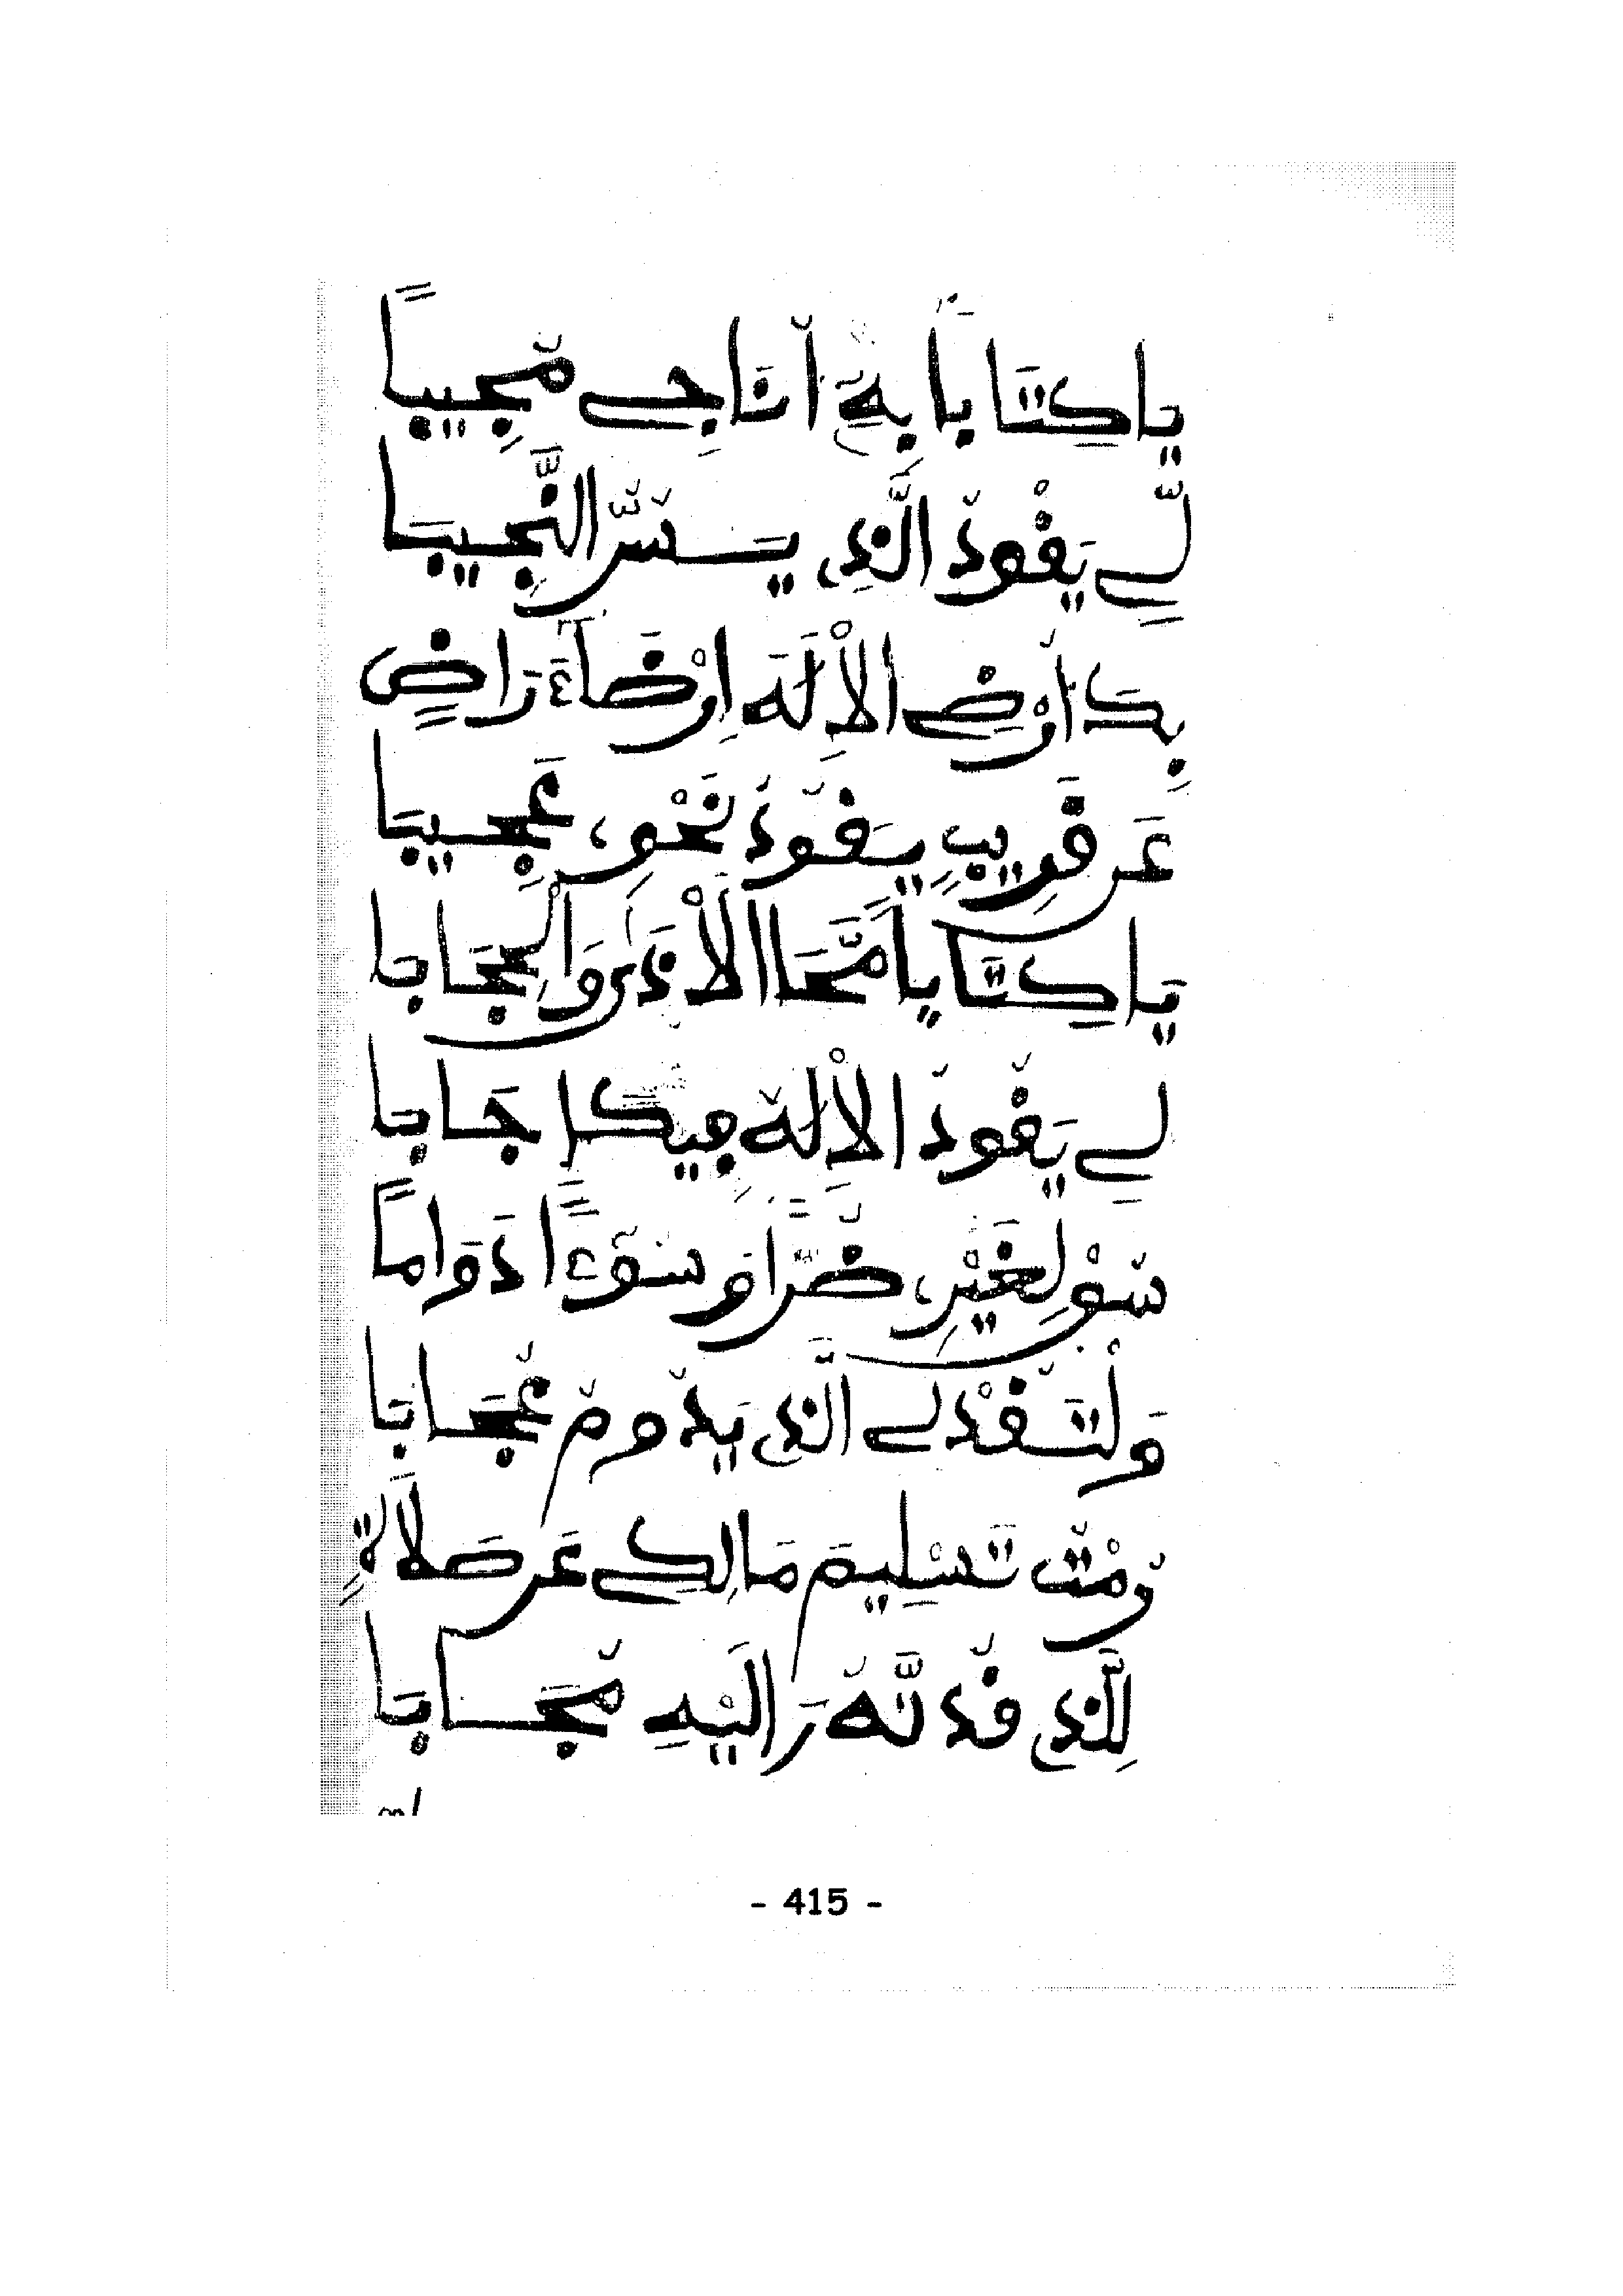 يَا كِتَابًا بِهِ أُنَاجِي مُجِيبًا
لِّي يَقُودُ الَّذِي يَسُرُّ النَّجِيبَا
بِكَ أُرْضِي الْإِلَهَ إِرْضَاءَ رَاضٍ
عَن قَرِيبٍ يَقُودُ نَحْوِي عَجِيبَا
يَا كِتَابًا مَّحَا الْأَذَى وَالْحِجَابَا
لِي يَقُودُ الْإِلَهُ فِيكَ اجَابَا
سُؤْ لِغَيْرِي ضُرًّا وَسُوءًا دَوَامًا
وَلْتَقُدْ لِي الَّذِي يَدُومُ عُجَابَا
رُمْتُ تَسْلِيمَ مَالِكِي عَن صَلَاةٍ
لِلَّذِي قُدْتُّهُ رَ الَيْهِ مُجَابَا
- 415 -